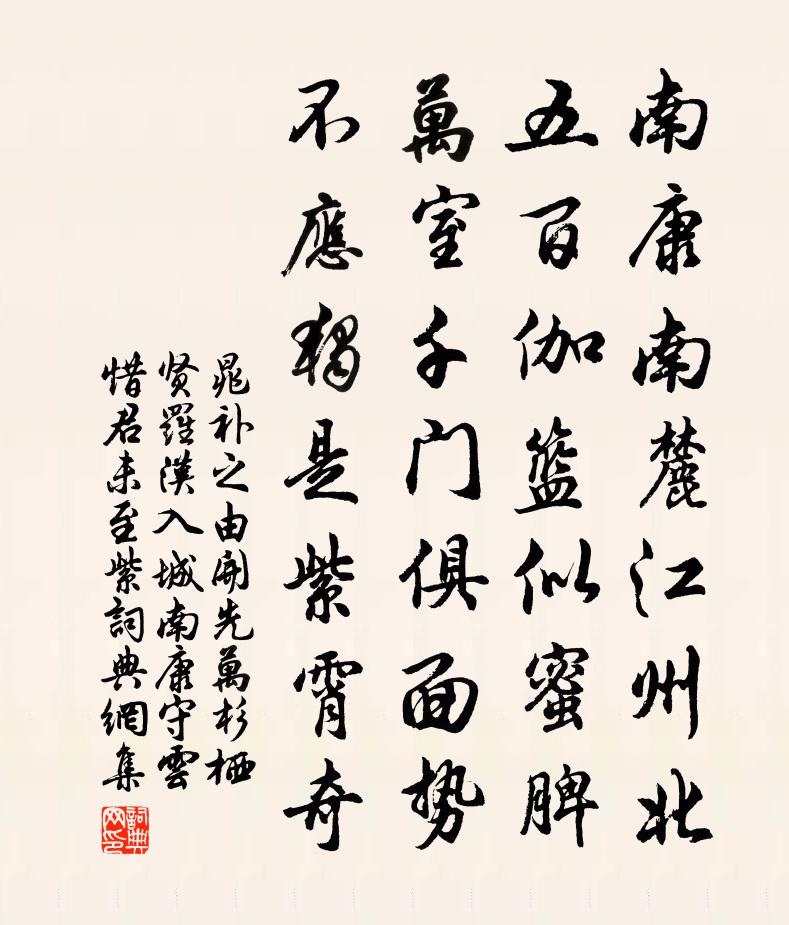 南康南麓江州北
五百伽籃似蜜脾
萬室千门俱面势
不應獨是紫霄奇
晁补之由開先萬杉栖
贤羅漢入城南康守雲
惜君未至紫詞典網集
詞典
网印